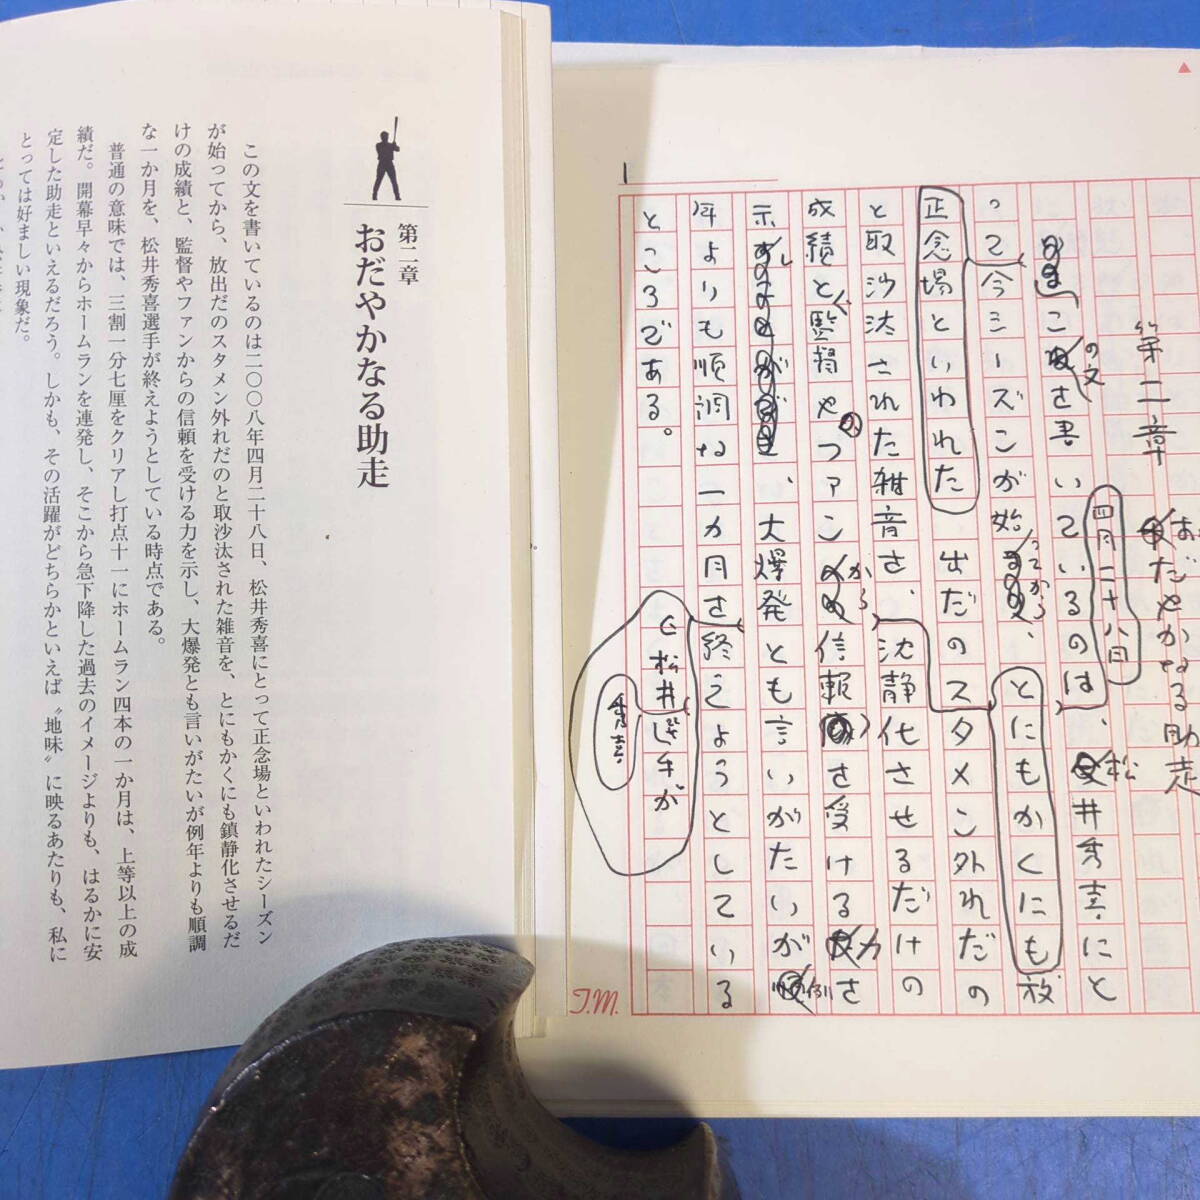 第二章
おだやかなる助走
この文を書いているのは二〇〇八年四月二十八日、松井秀喜にとって正念場といわれたシーズン
が始ってから、放出だのスタメン外れだのと取沙汰された雑音を、とにもかくにも鎮静化させるだ
けの成績と、監督やファンからの信頼を受ける力を示し、大爆発とも言いがたいが例年よりも順調
な一か月を、松井秀喜選手が終えようとしている時点である。
普通の意味では、三割一分七厘をクリアし打点十一にホームラン四本の一か月は、上等以上の成
績だ。開幕早々からホームランを連発し、そこから急下降した過去のイメージよりも、はるかに安
定した助走といえるだろう。しかも、その活躍がどちらかといえば〝地味〟に映るあたりも、私に
とっては好ましい現象だ。
第二章 おだやかなる助走
この文を書いているのは、松井秀喜にと
四月二十八日
って今シーズンが始ってから、とにもかくにも放
正念場といわれた
出だのスタメン外れだの
と取沙汰された雑音を、沈静化させるだけの
成績と、監督やファンからの信頼を受ける力を
示し、大爆発とも言いがたいが例
年よりも順調な一カ月を終えようとしている
ところである。
松井
秀喜
が
1
T.M.